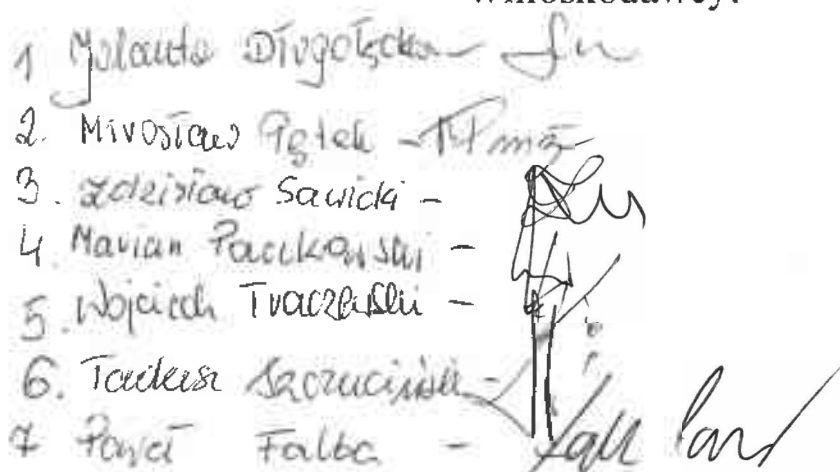 Wnioskodawcy:
1 Jolanta Długołęcka -
2. Mirosław Piątek -
3. Zdzisław Sawicki -
4 Marian Paczkowski -
5. Wojciech Traczewski -
6. Tadeusz Szczuciński -
7 Paweł Falba -